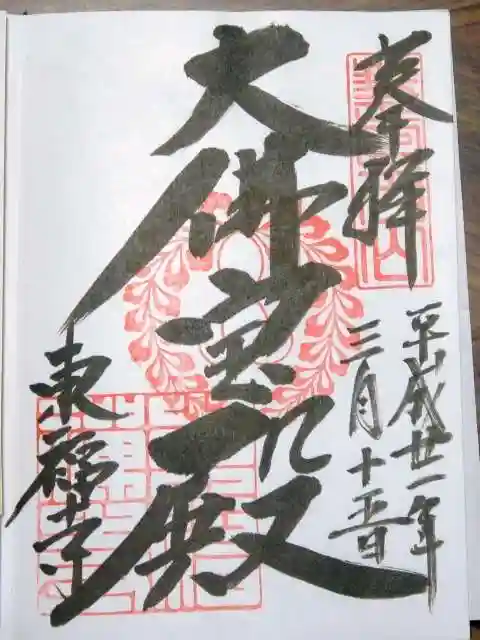 奉拝
平成廿一年
三月十五日
大佛宝殿
東福寺